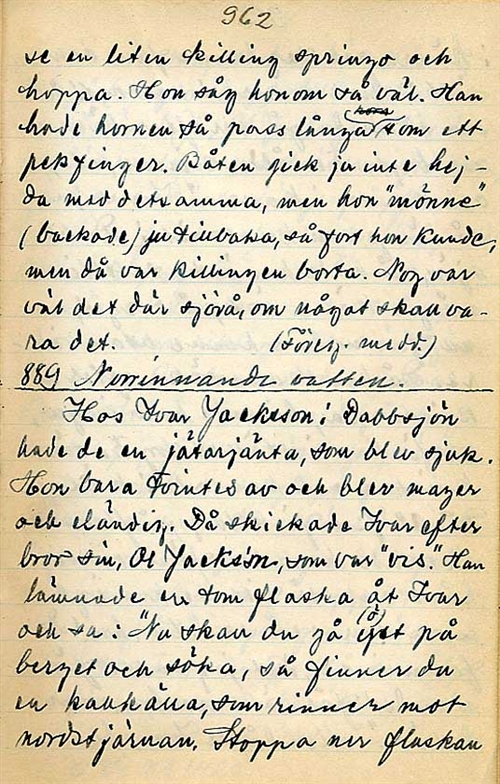 962
se en liten killing springa och
hoppa. Hon såg honom så väl. Han
hade hornen så pass långa som ett
pekfinger. Båten gick ju inte hej-
da med detsamma, men hon "mönne"
(backade) ju tillbaka, så fort hon kunde,
men då var killingen borta. Nog var
väl det där sjörå, om något skall va-
ra det. (Föreg. medd.)
889 Norrinnande vatten.
Hos Ivar Jacksson i Dabbsjön
hade de en jätarjänta, som blev sjuk.
Hon bara tvintes av och blev mager
och eländig. Då skickade Ivar efter
bror sin, Ol Jacks'n, som var "vis." Han
lämnade en tom flaska åt Ivar
och sa: "Nu skall du gå (ö) på
berget och söka, så finner du
en kallkälla, som rinner mot
nordstjärnan. Stoppa ner flaskan